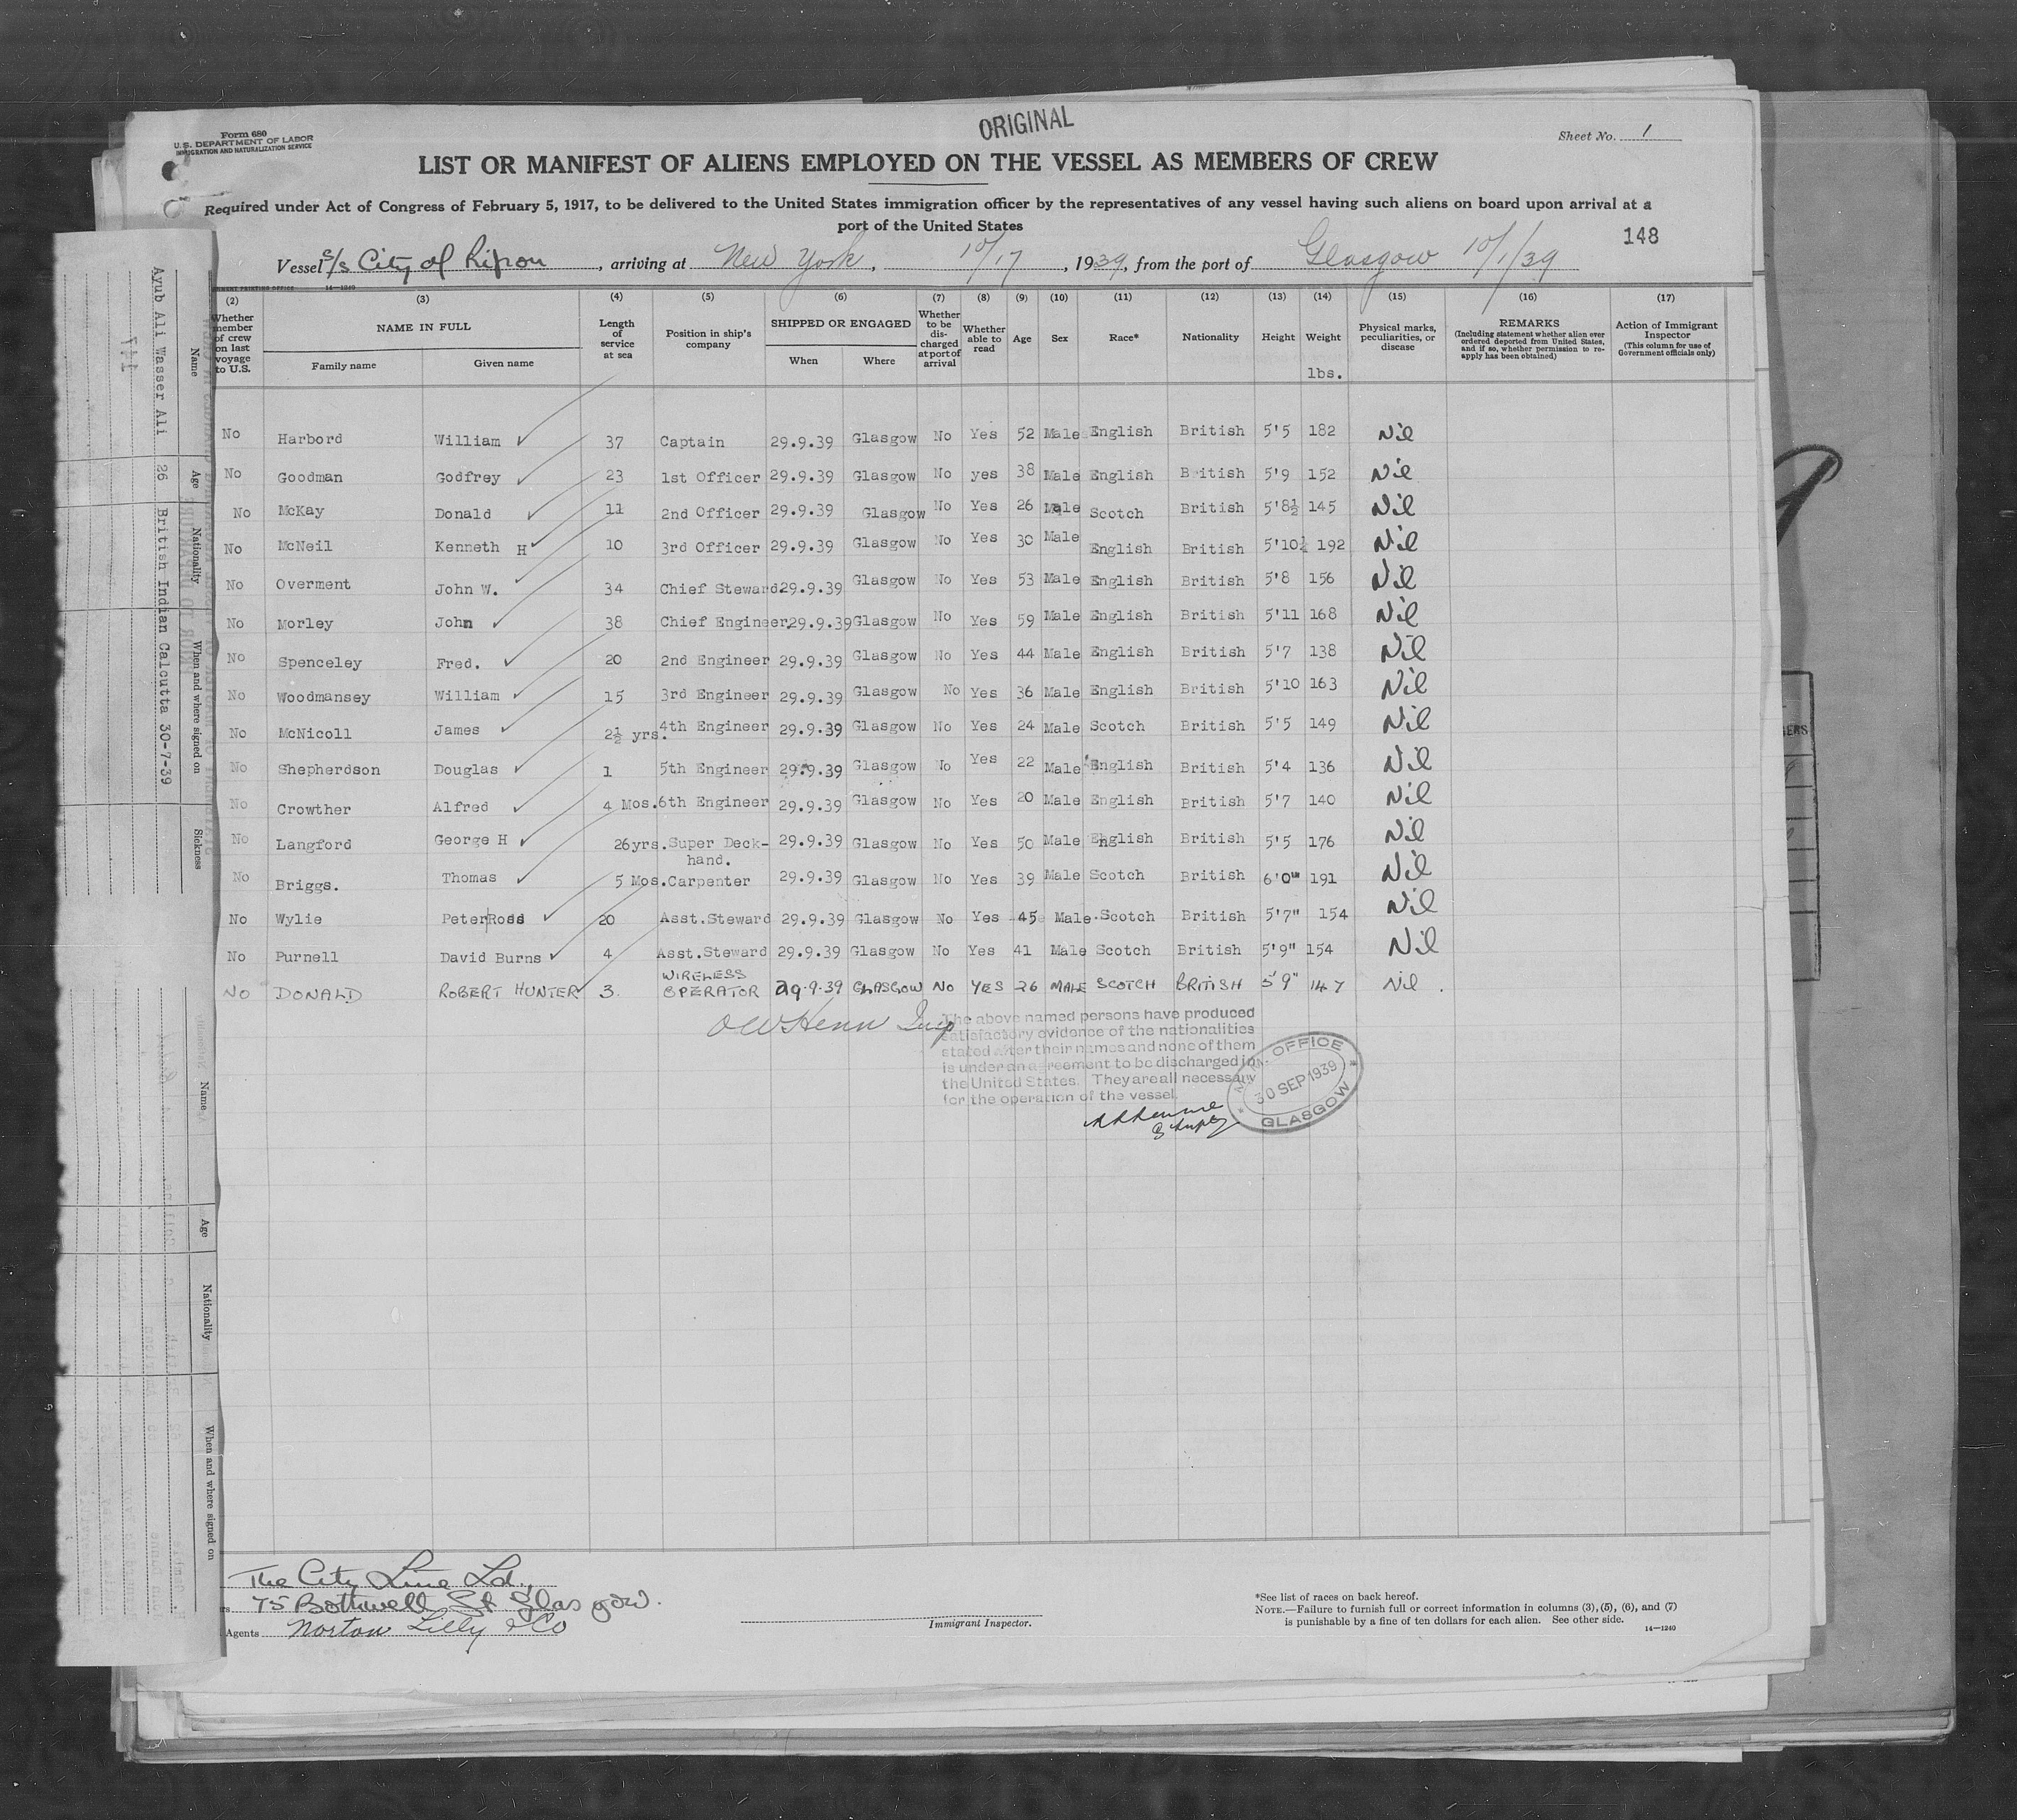 Form 680
U.S. DEPARTMENT OF LABOR
IMMIGRATION AND NATURALIZATION SERVICE
ORIGINAL
Sheet No. 1
LIST OR MANIFEST OF ALIENS EMPLOYED ON THE VESSEL AS MEMBERS OF CREW
Required under Act of Congress of February 5, 1917, to be delivered to the United States immigration officer by the representatives of any vessel having such aliens on board upon arrival at a
port of the United States
148
Vessel s/s City of Ripon, arriving at New York, 10/17, 1939, from the port of Glasgow 10/1/39
(2) (3) (4) (5) (6) (7) (8) (9) (10) (11) (12) (13) (14) (15) (16) (17)
Whether member of crew on last voyage to U.S.
NAME IN FULL
Family name Given name
Length of service at sea
Position in ship's company
SHIPPED OR ENGAGED
When Where
Whether to be discharged at port of arrival
Whether able to read
Age
Sex
Race*
Nationality
Height
Weight
lbs.
Physical marks, peculiarities, or disease
REMARKS
(Including statement whether alien ever ordered deported from United States, and if so, whether permission to re-apply has been obtained)
Action of Immigrant Inspector
(This column for use of Government officials only)
No Harbord William 37 Captain 29.9.39 Glasgow No Yes 52 Male English British 5'5 182 Nil
No Goodman Godfrey 23 1st Officer 29.9.39 Glasgow No yes 38 Male English British 5'9 152 Nil
No McKay Donald 11 2nd Officer 29.9.39 Glasgow No Yes 26 Male Scotch British 5'8½ 145 Nil
No McNeil Kenneth H 10 3rd Officer 29.9.39 Glasgow No Yes 30 Male English British 5'10½ 192 Nil
No Overment John W. 34 Chief Steward 29.9.39 Glasgow No Yes 53 Male English British 5'8 156 Nil
No Morley John 38 Chief Engineer 29.9.39 Glasgow No Yes 59 Male English British 5'11 168 Nil
No Spenceley Fred. 20 2nd Engineer 29.9.39 Glasgow No Yes 44 Male English British 5'7 138 Nil
No Woodmansey William 15 3rd Engineer 29.9.39 Glasgow No Yes 36 Male English British 5'10 163 Nil
No McNicoll James 2½ yrs. 4th Engineer 29.9.39 Glasgow No Yes 24 Male Scotch British 5'5 149 Nil
No Shepherdson Douglas 1 5th Engineer 29.9.39 Glasgow No Yes 22 Male English British 5'4 136 Nil
No Crowther Alfred 4 Mos. 6th Engineer 29.9.39 Glasgow No Yes 20 Male English British 5'7 140 Nil
No Langford George H 26yrs. Super Deck-hand. 29.9.39 Glasgow No Yes 50 Male English British 5'5 176 Nil
No Briggs. Thomas 5 Mos. Carpenter 29.9.39 Glasgow No Yes 39 Male Scotch British 6'0" 191 Nil
No Wylie Peter Ross 20 Asst. Steward 29.9.39 Glasgow No Yes 45 Male Scotch British 5'7" 154 Nil
No Purnell David Burns 4 Asst. Steward 29.9.39 Glasgow No Yes 41 Male Scotch British 5'9" 154 Nil
No DONALD ROBERT HUNTER 3. WIRELESS OPERATOR 29.9.39 GLASGOW No YES 26 MALE SCOTCH BRITISH 5'9" 147 Nil.
The above named persons have produced
satisfactory evidence of the nationalities
stated after their names and none of them
is under an agreement to be discharged in
the United States. They are all necessary
for the operation of the vessel.
OFFICE
30 SEP 1939
GLASGOW
The City Line Ld.,
75 Bothwell St Glasgow.
Agents Norton Lilly & Co
Immigrant Inspector.
*See list of races on back hereof.
NOTE.—Failure to furnish full or correct information in columns (3), (5), (6), and (7)
is punishable by a fine of ten dollars for each alien. See other side.
14—1240
Name Age Nationality When and where signed on Sickness
Ayub Ali Wasser Ali 26 British Indian Calcutta 30-7-39
Name Age Nationality When and where signed on